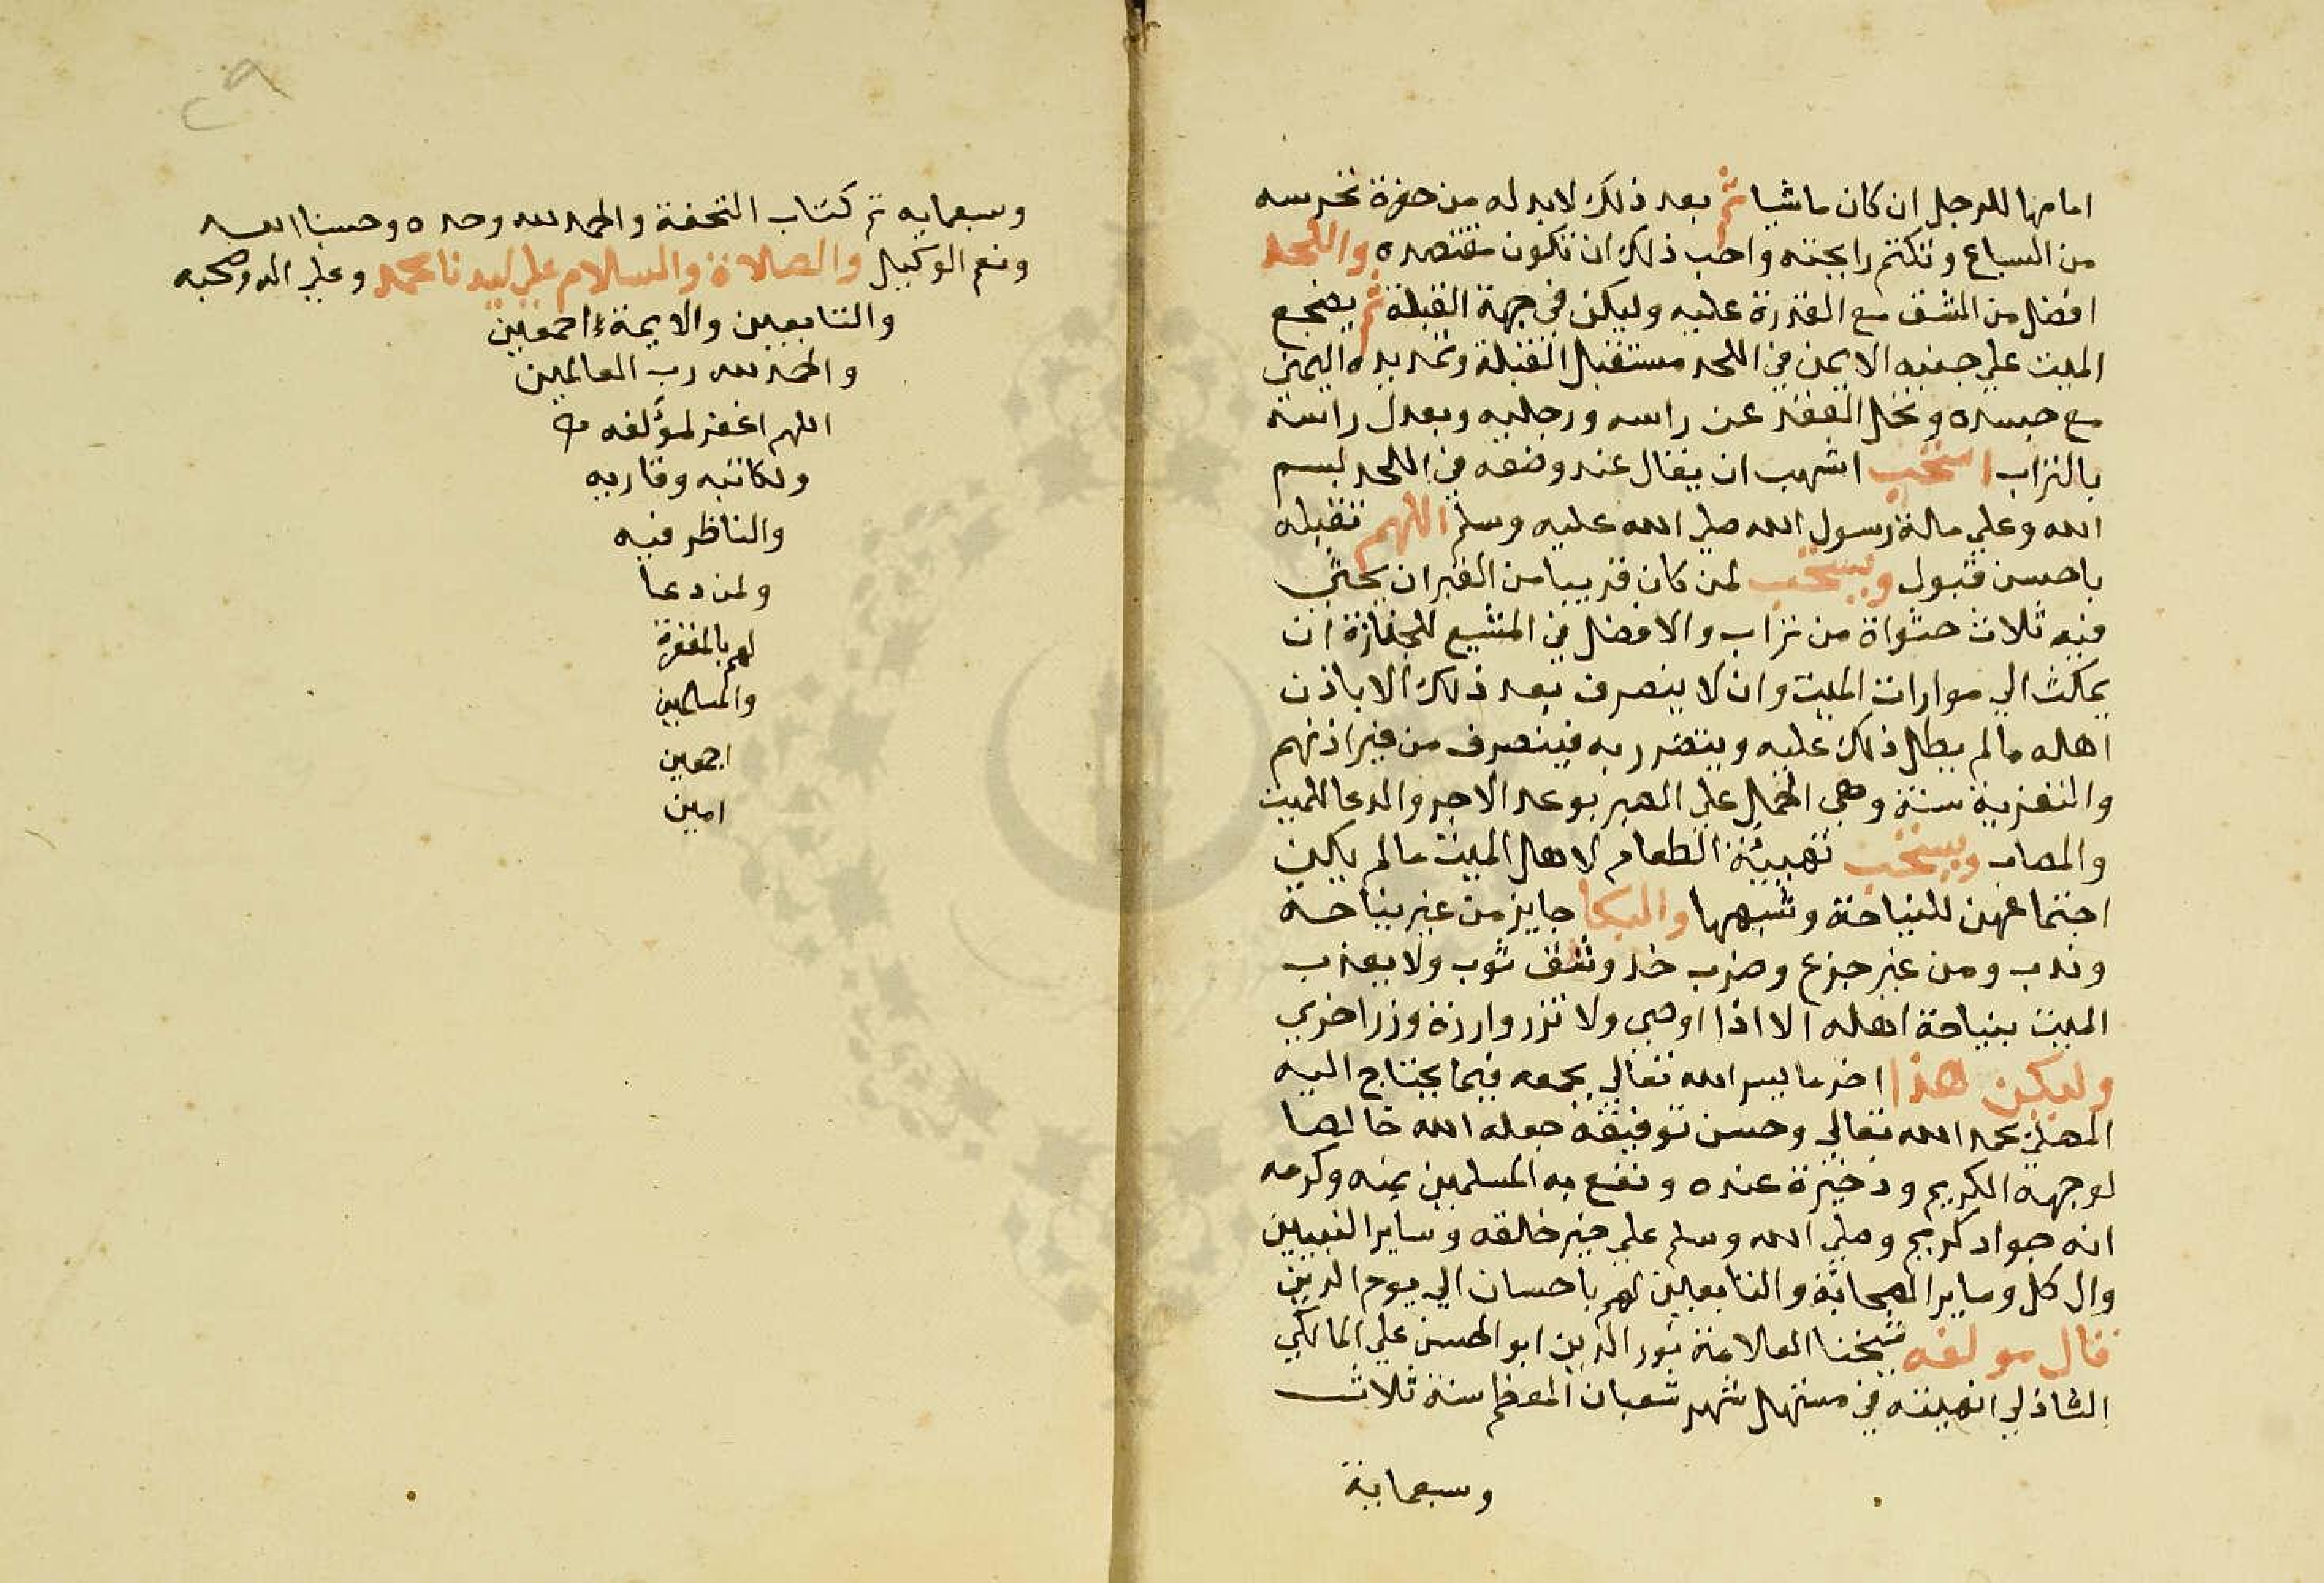 امامها للرجل ان كان ماشيا ثم بعد ذلك لابد له من حفرة تحرسه
من السباع وتكتم رايحته واحب ذلك ان تكون مقتصده واللحد
افضل من الشق مع القدرة عليه وليكن في جهة القبلة ثم يضجع
الميت علي جنبه الايمن في اللحد مستقبل القبلة وتمد يده اليمني
مع جسده وتحل العقد عن راسه ورجليه ويعدل راسه
بالتراب استحب اشهب ان يقال عند وضعه في اللحد بسم
الله وعلي ملة رسول الله صلي الله عليه وسلم اللهم تقبله
باحسن قبول ويستحب لمن كان قريبا من القبر ان يحثي
فيه ثلاث حثواة من تراب والافضل في المشيع للجنازة ان
يمكث الي موارات الميت وان لا ينصرف بعد ذلك الا باذن
اهله مالم يطل ذلك عليه ويتضرر به فينصرف من غير اذنهم
والتعزية سنة وهي الحمل علي الصبر بوعد الاجر والدعا للميت
والمصاب ويستحب تهيية الطعام لاهل الميت مالم يكن
اجتماعهن للنياحة وشبهها والبكا جايز من غير نياحة
وندب ومن غير جزع وضرب خد وشق ثوب ولا يعذب
الميت بنياحة اهله الا اذا اوصي ولا تزر وازرة وزر اخري
وليكن هذا اخر ما يسر الله تعالي بجمعه فيما يحتاج اليه
المصلي بحمد الله تعالي وحسن توفيقه جعله الله خالصا
لوجهه الكريم وذخيرة عنده ونفع به المسلمين بمنه وكرمه
انه جواد كريم وصلي الله وسلم علي خير خلقه وساير النبيين
وال كل وساير الصحابة والتابعين لهم باحسان الي يوم الدين
قال مولفه شيخنا العلامة نور الدين ابو الحسن علي المالكي
الشاذلي انهيته في مستهل شهر شعبان المعظم سنة ثلاث
وسبعماية
وسبعمايه تم كتاب التحفة والحمد لله وحده وحسبنا الله
ونعم الوكيل والصلاة والسلام علي سيدنا محمد وعلي اله وصحبه
والتابعين والايمة اجمعين
والحمد لله رب العالمين
اللهم اغفر لمؤلفه
ولكاتبه وقاريه
والناظر فيه
ولمن دعا
لهم بالمغفرة
والمسلمين
اجمعين
امين